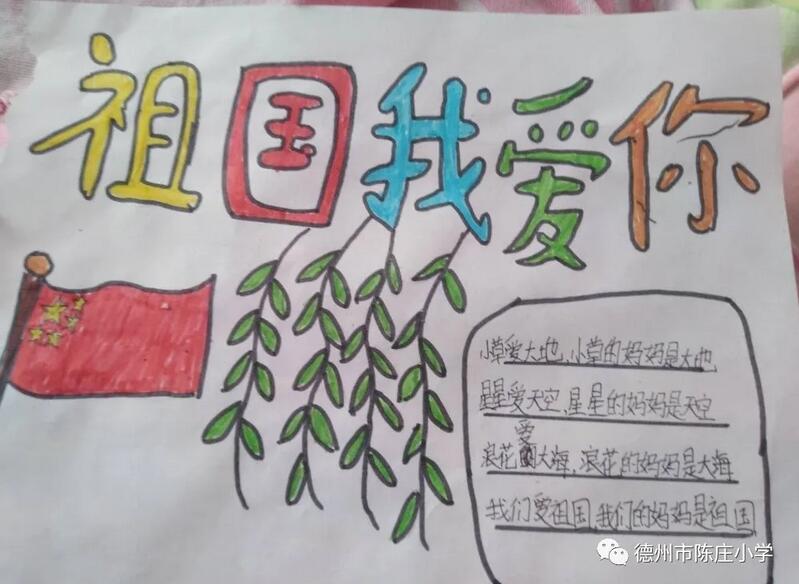 祖国我爱你
小草爱大地,小草的妈妈是大地
星星爱天空,星星的妈妈是天空
浪花爱大海,浪花的妈妈是大海
我们爱祖国,我们的妈妈是祖国
德州市陈庄小学